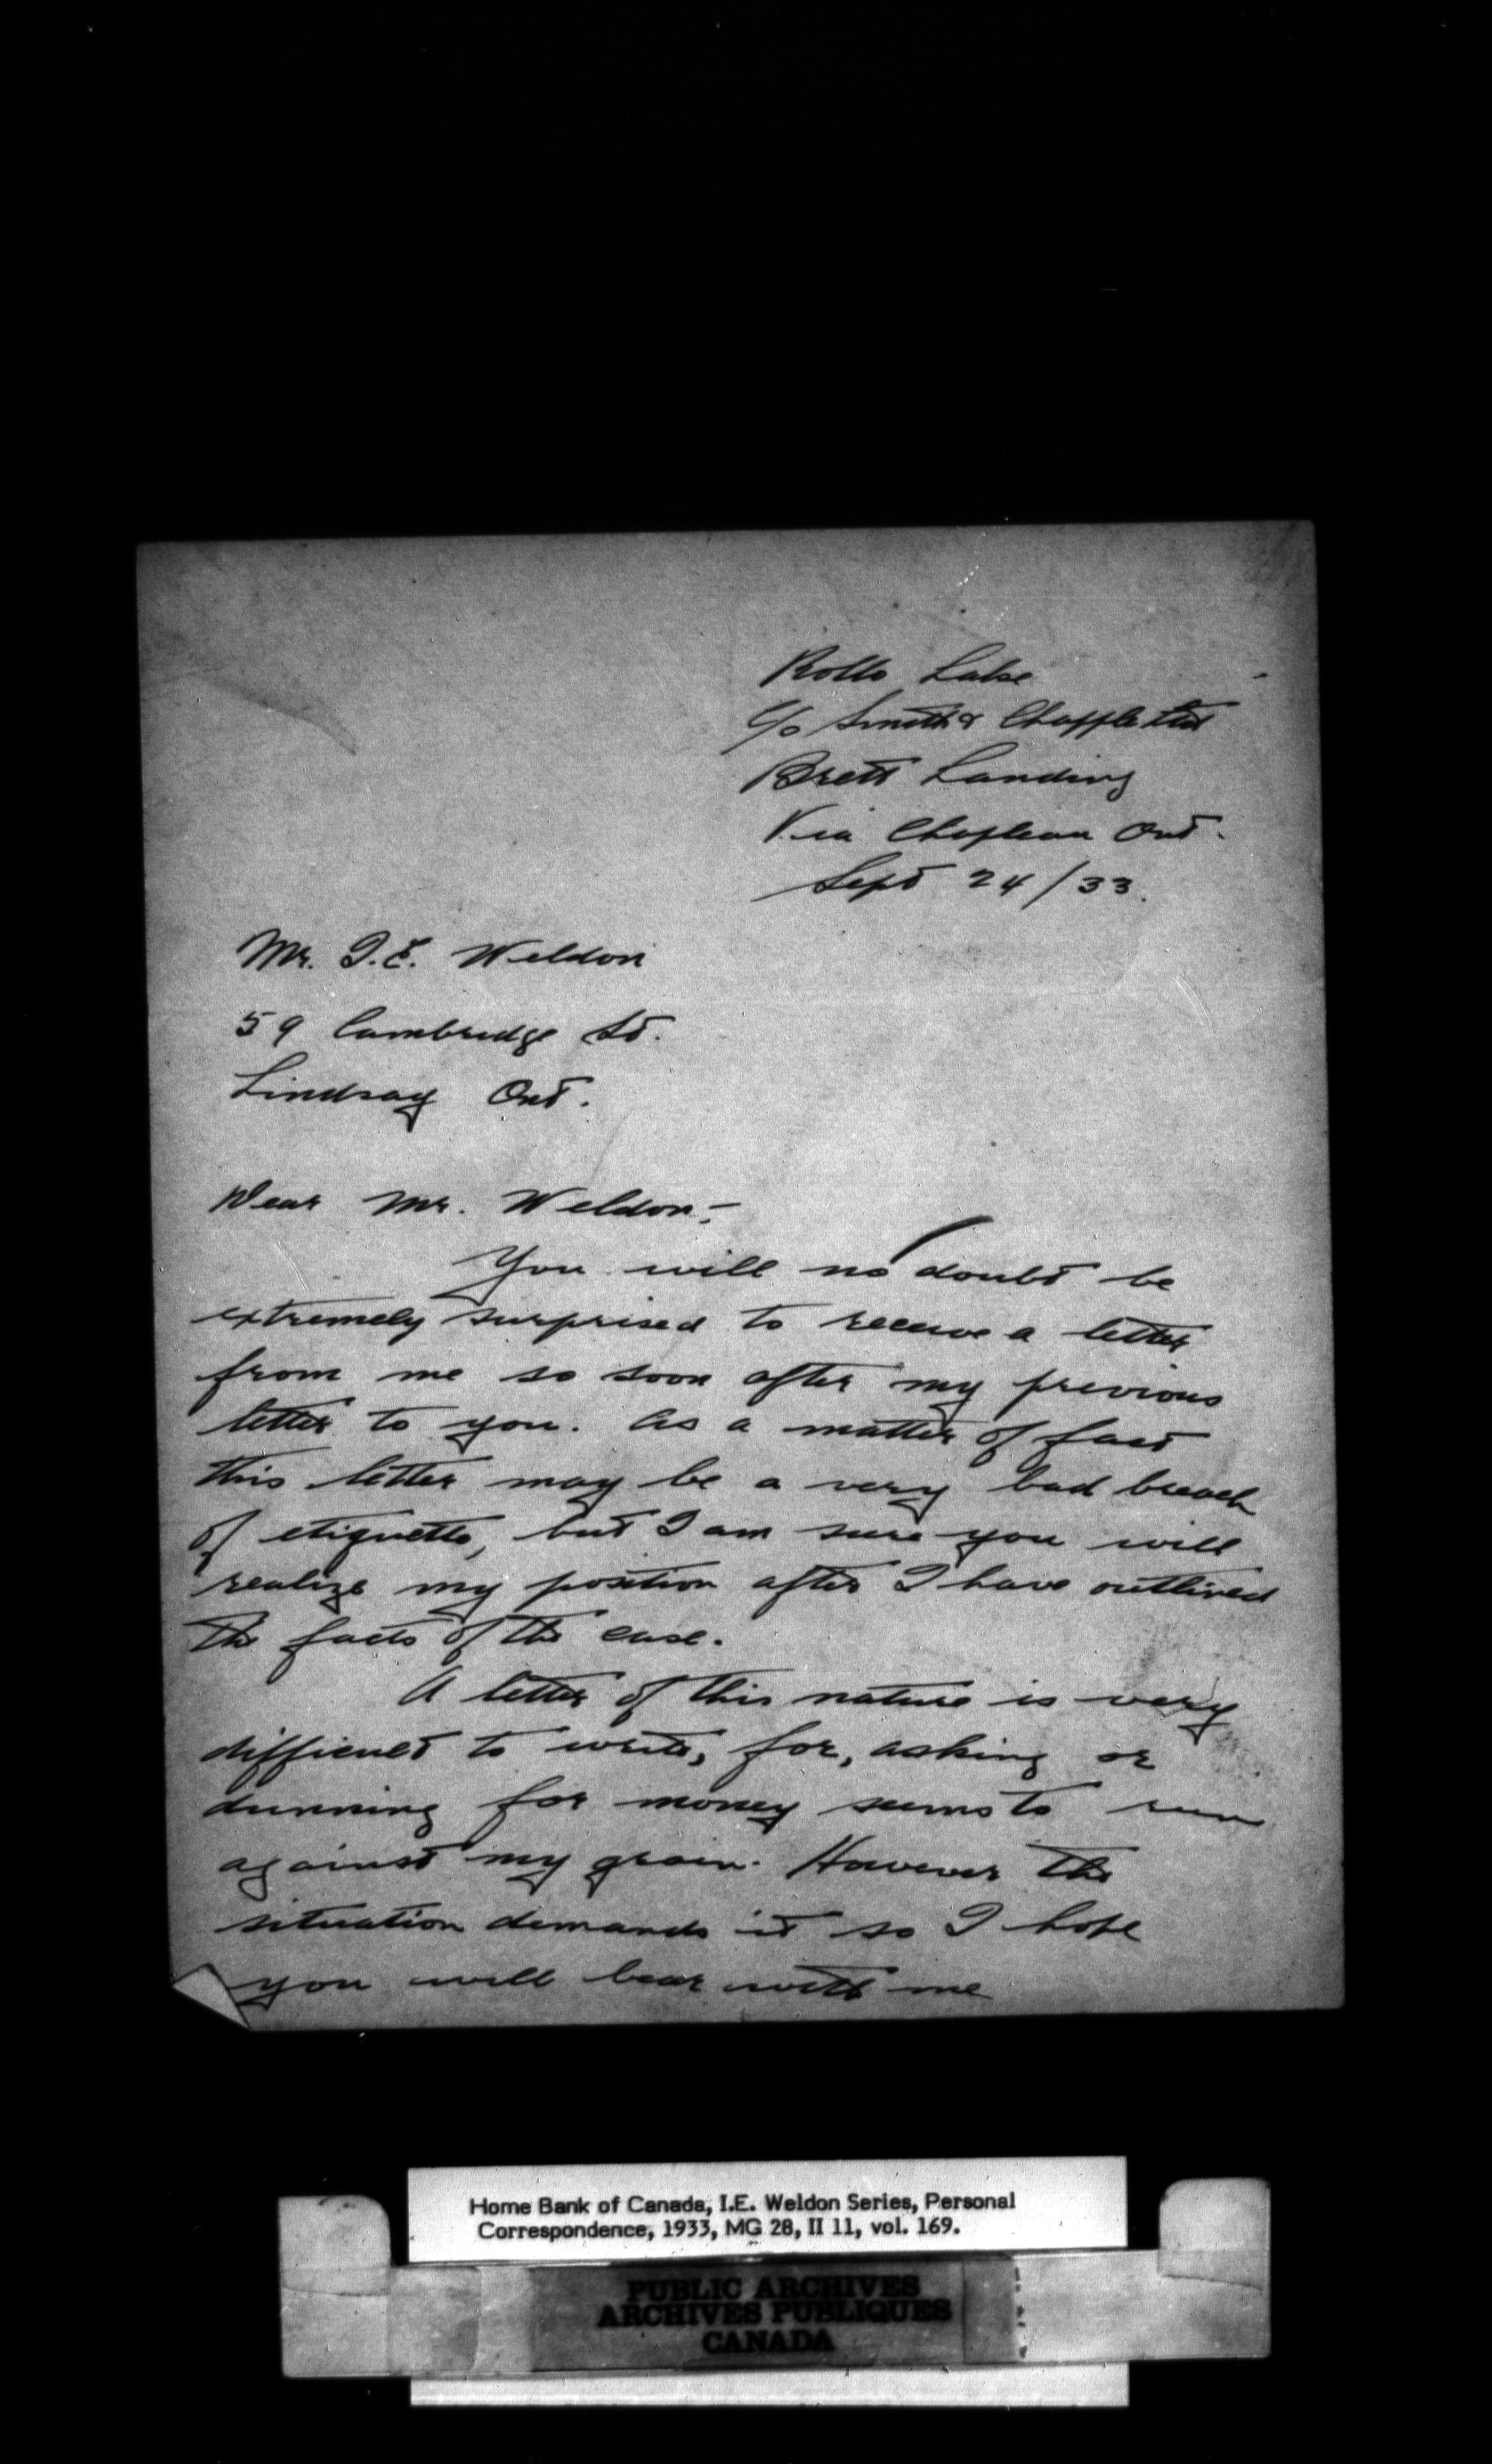 Rollo Lake
c/o Smith & Chapple Ltd
Brett Landing
Via Chapleau Ont.
Sept 24/33.
Mr. I.E. Weldon
59 Cambridge St.
Lindsay Ont.
Dear Mr. Weldon;-
You will no doubt be
extremely surprised to receive a letter
from me so soon after my previous
letter to you. As a matter of fact
this letter may be a very bad breach
of etiquette, but I am sure you will
realize my position after I have outlined
the facts of the case.
A letter of this nature is very
difficult to write, for, asking or
dunning for money seems to run
against my grain. However the
situation demands it so I hope
you will bear with me
Home Bank of Canada, I.E. Weldon Series, Personal
Correspondence, 1933, MG 28, II 11, vol. 169.
PUBLIC ARCHIVES
ARCHIVES PUBLIQUES
CANADA